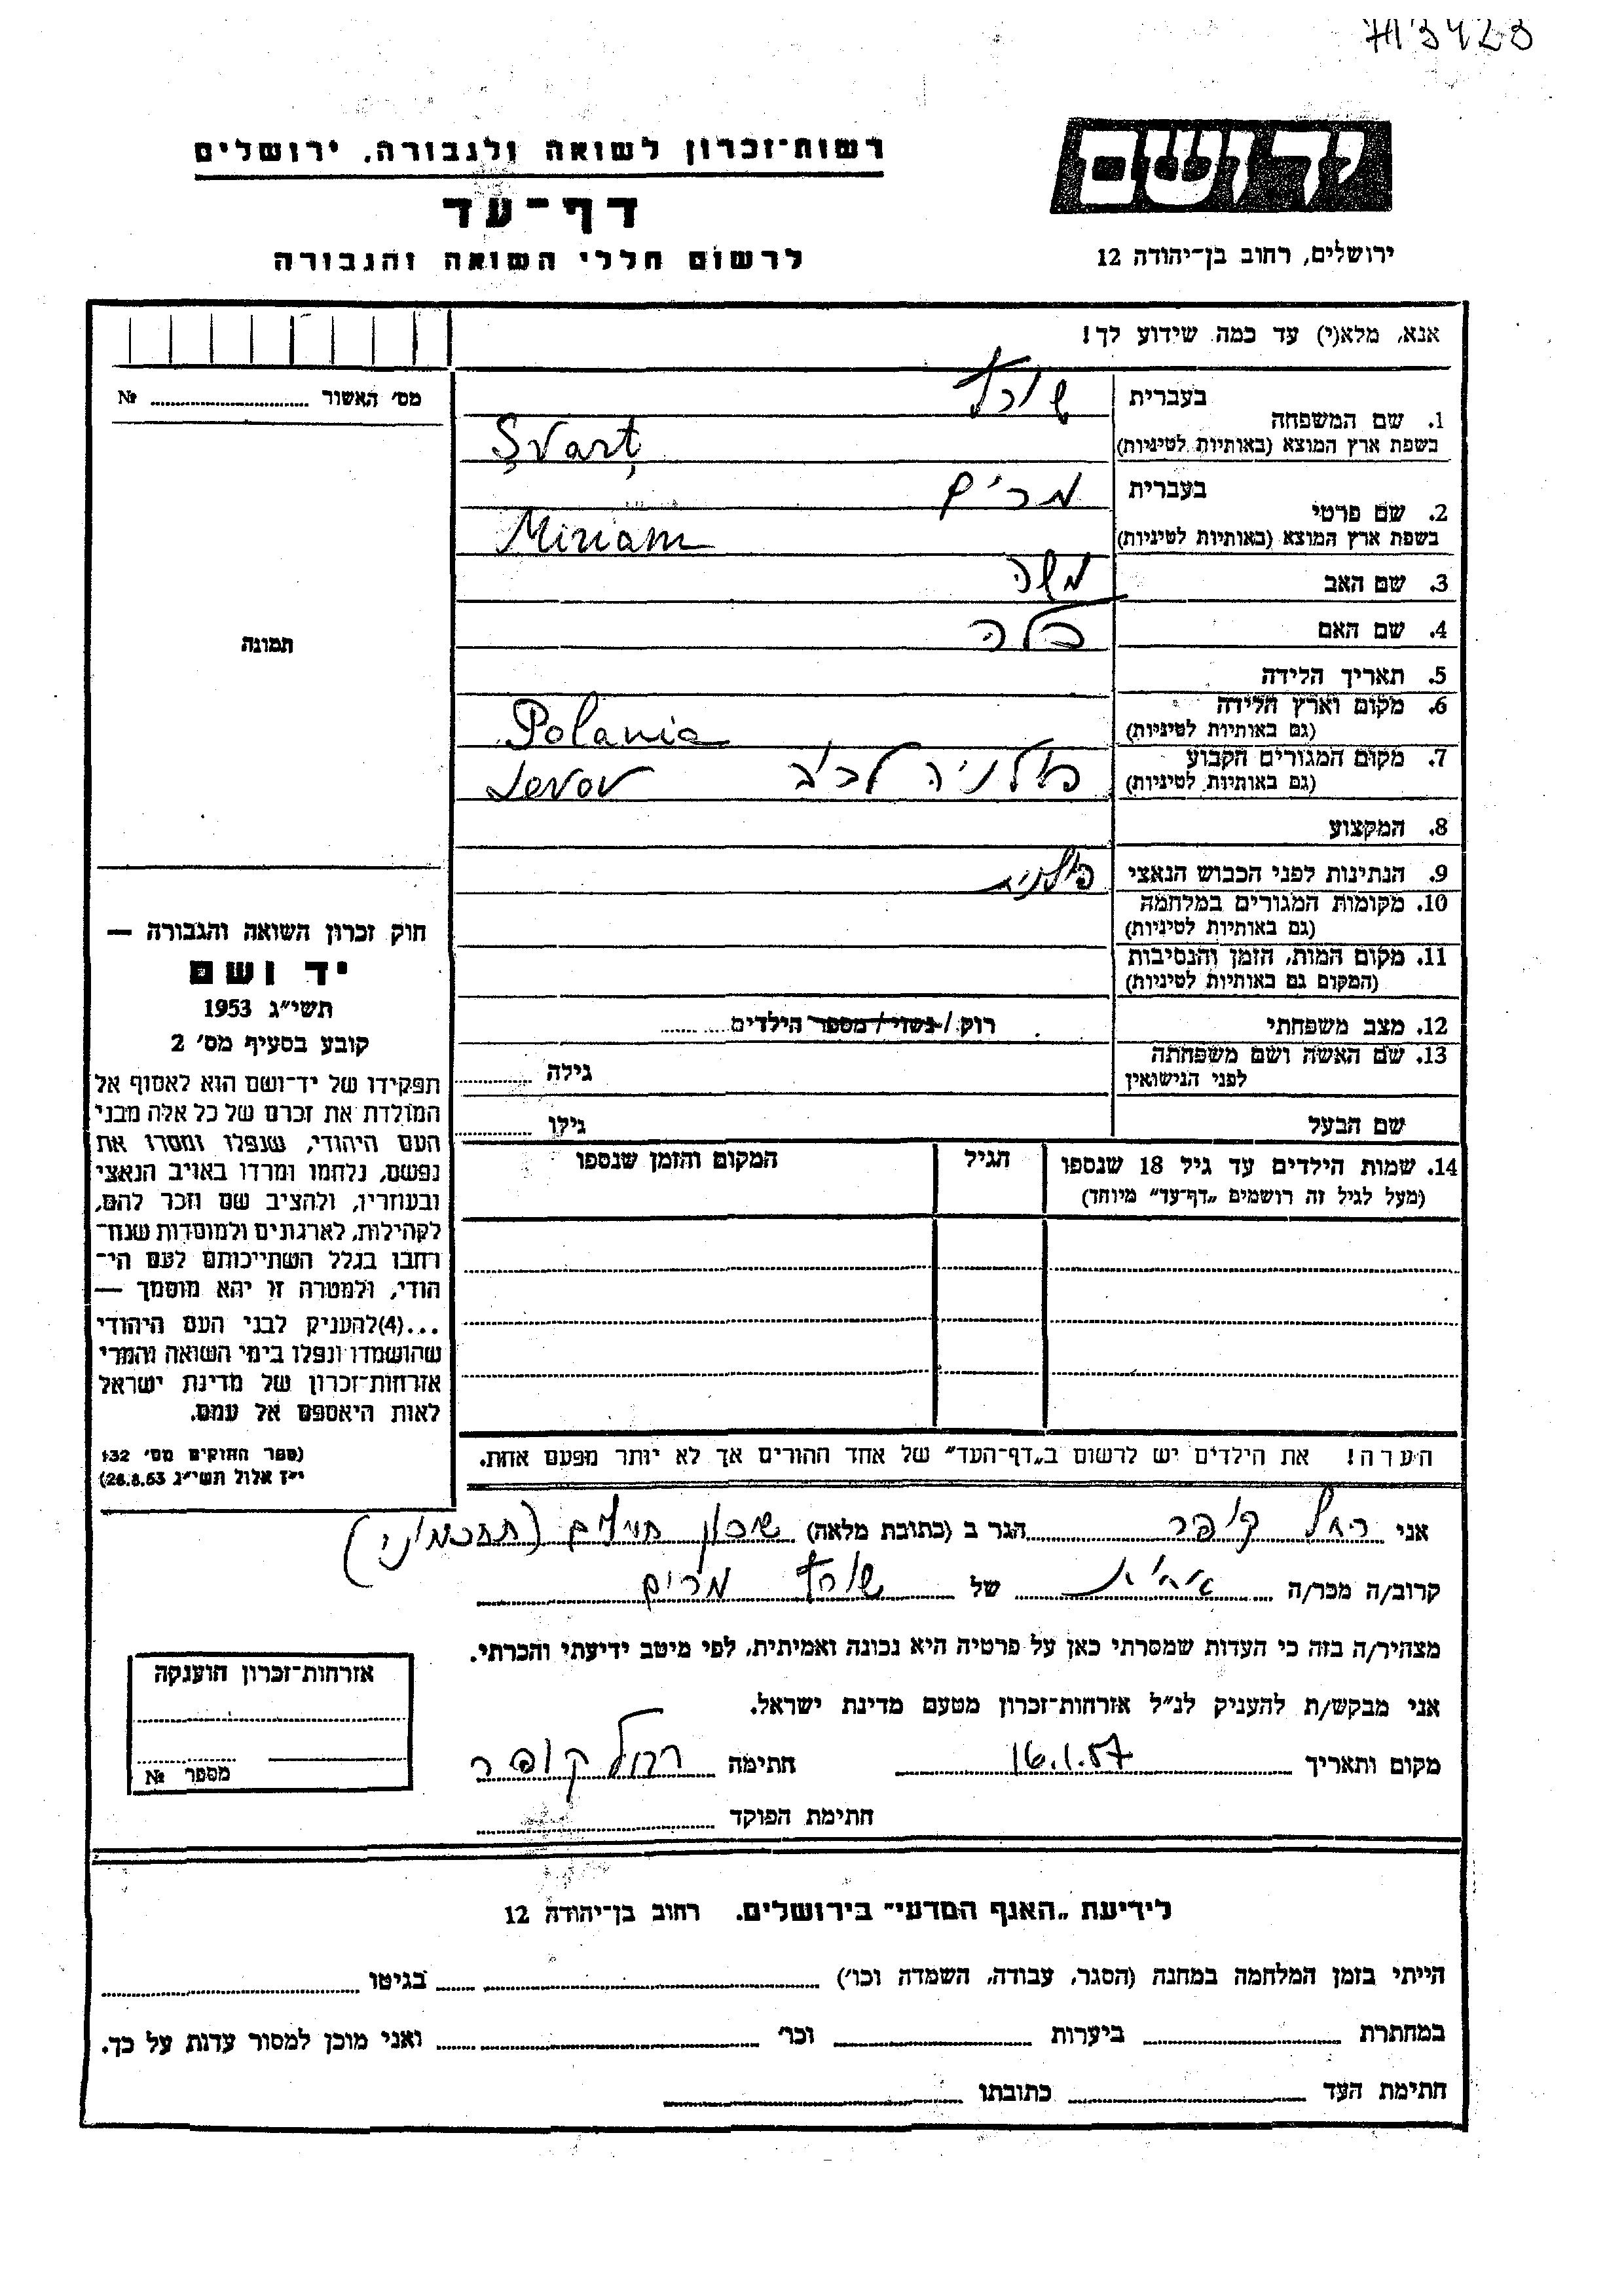 רשות־זכרון לשואה ולגבורה, ירושלים
דף־עד
לרשום חללי השואה והגבורה
ידושם
ירושלים, רחוב בן־יהודה 12
אנא, מלא(י) עד כמה שידוע לך!
מס׳ האשור № ........
תמונה
1. שם המשפחה
בעברית שורץ
בשפת ארץ המוצא (באותיות לטיניות) Şvarţ
2. שם פרטי
בעברית מרים
בשפת ארץ המוצא (באותיות לטיניות) Miriam
3. שם האב משה
4. שם האם בלה
5. תאריך הלידה
6. מקום וארץ הלידה
(גם באותיות לטיניות) Polania
7. מקום המגורים הקבוע
(גם באותיות לטיניות) פולניה לבוב Levov
8. המקצוע
9. הנתינות לפני הכבוש הנאצי פולנית
10. מקומות המגורים במלחמה
(גם באותיות לטיניות)
11. מקום המות, הזמן והנסיבות
(המקום גם באותיות לטיניות)
12. מצב משפחתי רוק / נשוי / מספר הילדים ........
13. שם האשה ושם משפחתה
לפני הנישואין גילה ........
שם הבעל גילו ........
14. שמות הילדים עד גיל 18 שנספו
(מעל לגיל זה רושמים „דף־עד״ מיוחד)
הגיל
המקום והזמן שנספו
הערה! את הילדים יש לרשום ב„דף־העד״ של אחד ההורים אך לא יותר מפעם אחת.
חוק זכרון השואה והגבורה —
יד ושם
תשי״ג 1953
קובע בסעיף מס׳ 2
תפקידו של יד־ושם הוא לאסוף אל
המולדת את זכרם של כל אלה מבני
העם היהודי, שנפלו ומסרו את
נפשם, נלחמו ומרדו באויב הנאצי
ובעוזריו, ולהציב שם וזכר להם,
לקהילות, לארגונים ולמוסדות שנח־
רחבו בגלל השתייכותם לעם הי־
הודי, ולמטרה זו יהא מוסמך —
...(4)להעניק לבני העם היהודי
שהושמדו ונפלו בימי השואה והמרי
אזרחות־זכרון של מדינת ישראל
לאות היאספם אל עמם.
(ספר החוקים מס׳ 132
י״ז אלול תשי״ג 28.8.53)
אני רחל קופר הגר ב (כתובת מלאה) שכון חיילים (תחכמוני)
קרוב/ה מכר/ה אחות של שורץ מרים
מצהיר/ה בזה כי העדות שמסרתי כאן על פרטיה היא נכונה ואמיתית, לפי מיטב ידיעתי והכרתי.
אני מבקש/ת להעניק לנ״ל אזרחות־זכרון מטעם מדינת ישראל.
מקום ותאריך 16.1.57 חתימה רחל קופר
חתימת הפוקד ........
אזרחות־זכרון הוענקה
מספר №
לידיעת „האגף המדעי״ בירושלים, רחוב בן־יהודה 12
הייתי בזמן המלחמה במחנה (הסגר, עבודה, השמדה וכו׳) ........ בגיטו ........
במחתרת ........ ביערות ........ וכו׳ ........ ואני מוכן למסור עדות על כך.
חתימת העד ........ כתובתו ........